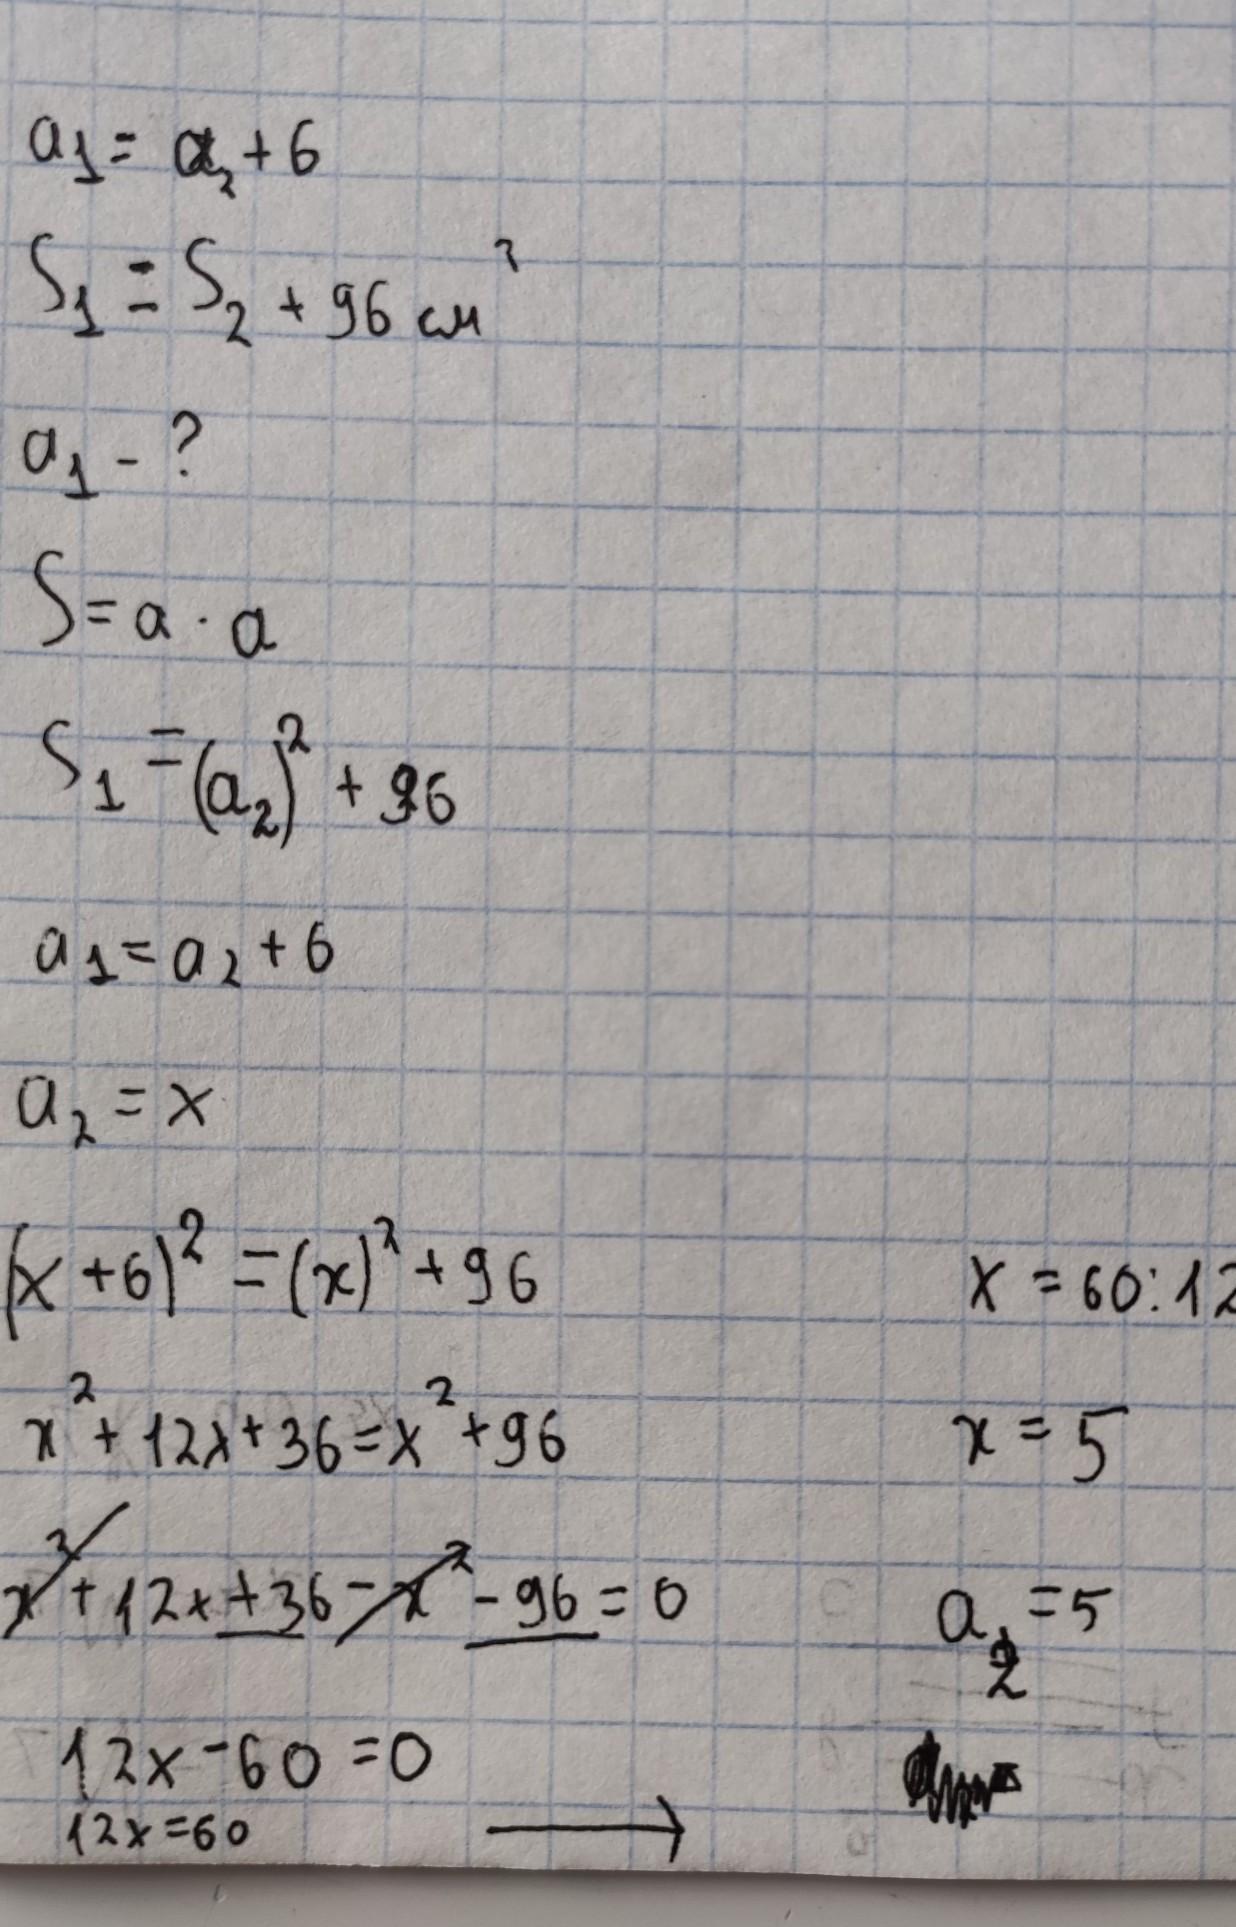 a₁ = a₂ + 6
S₁ = S₂ + 96 см²
a₁ - ?
S = a · a
S₁ = (a₂)² + 96
a₁ = a₂ + 6
a₂ = x
(x + 6)² = (x)² + 96
x² + 12x + 36 = x² + 96
x² + 12x + 36 - x² - 96 = 0
12x - 60 = 0
12x = 60
x = 60 : 12
x = 5
a₂ = 5